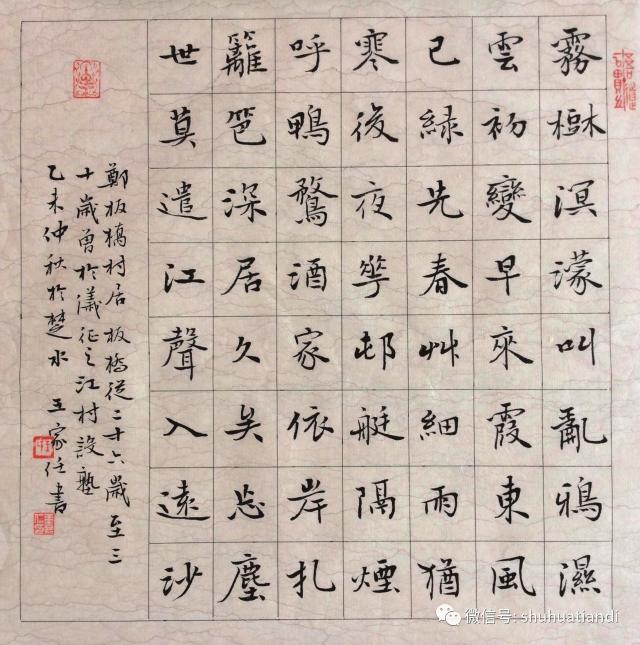 霧樹溟濛叫亂鴉濕
雲初變早來霞東風
已綠先春艸細雨猶
寒後夜花邨艇隔煙
呼鴨鶩酒家依岸扎
籬笆深居久矣忘塵
世莫遣江聲入遠沙
鄭板橋村居 板橋從二十六歲至三
十歲曾於儀征之江村設塾
乙未仲秋於楚水 王家任書
微信号: shuhuatiandi